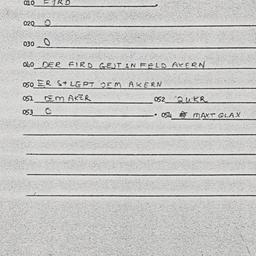 010 FIRD
020 0
030 0
040 DER FIRD GEIT IN FELD AKERN
050 ER STLEPT DEM AKERN
051 DEM AKER 052 ZUKR
053 0 · 054 MAXT GLAX